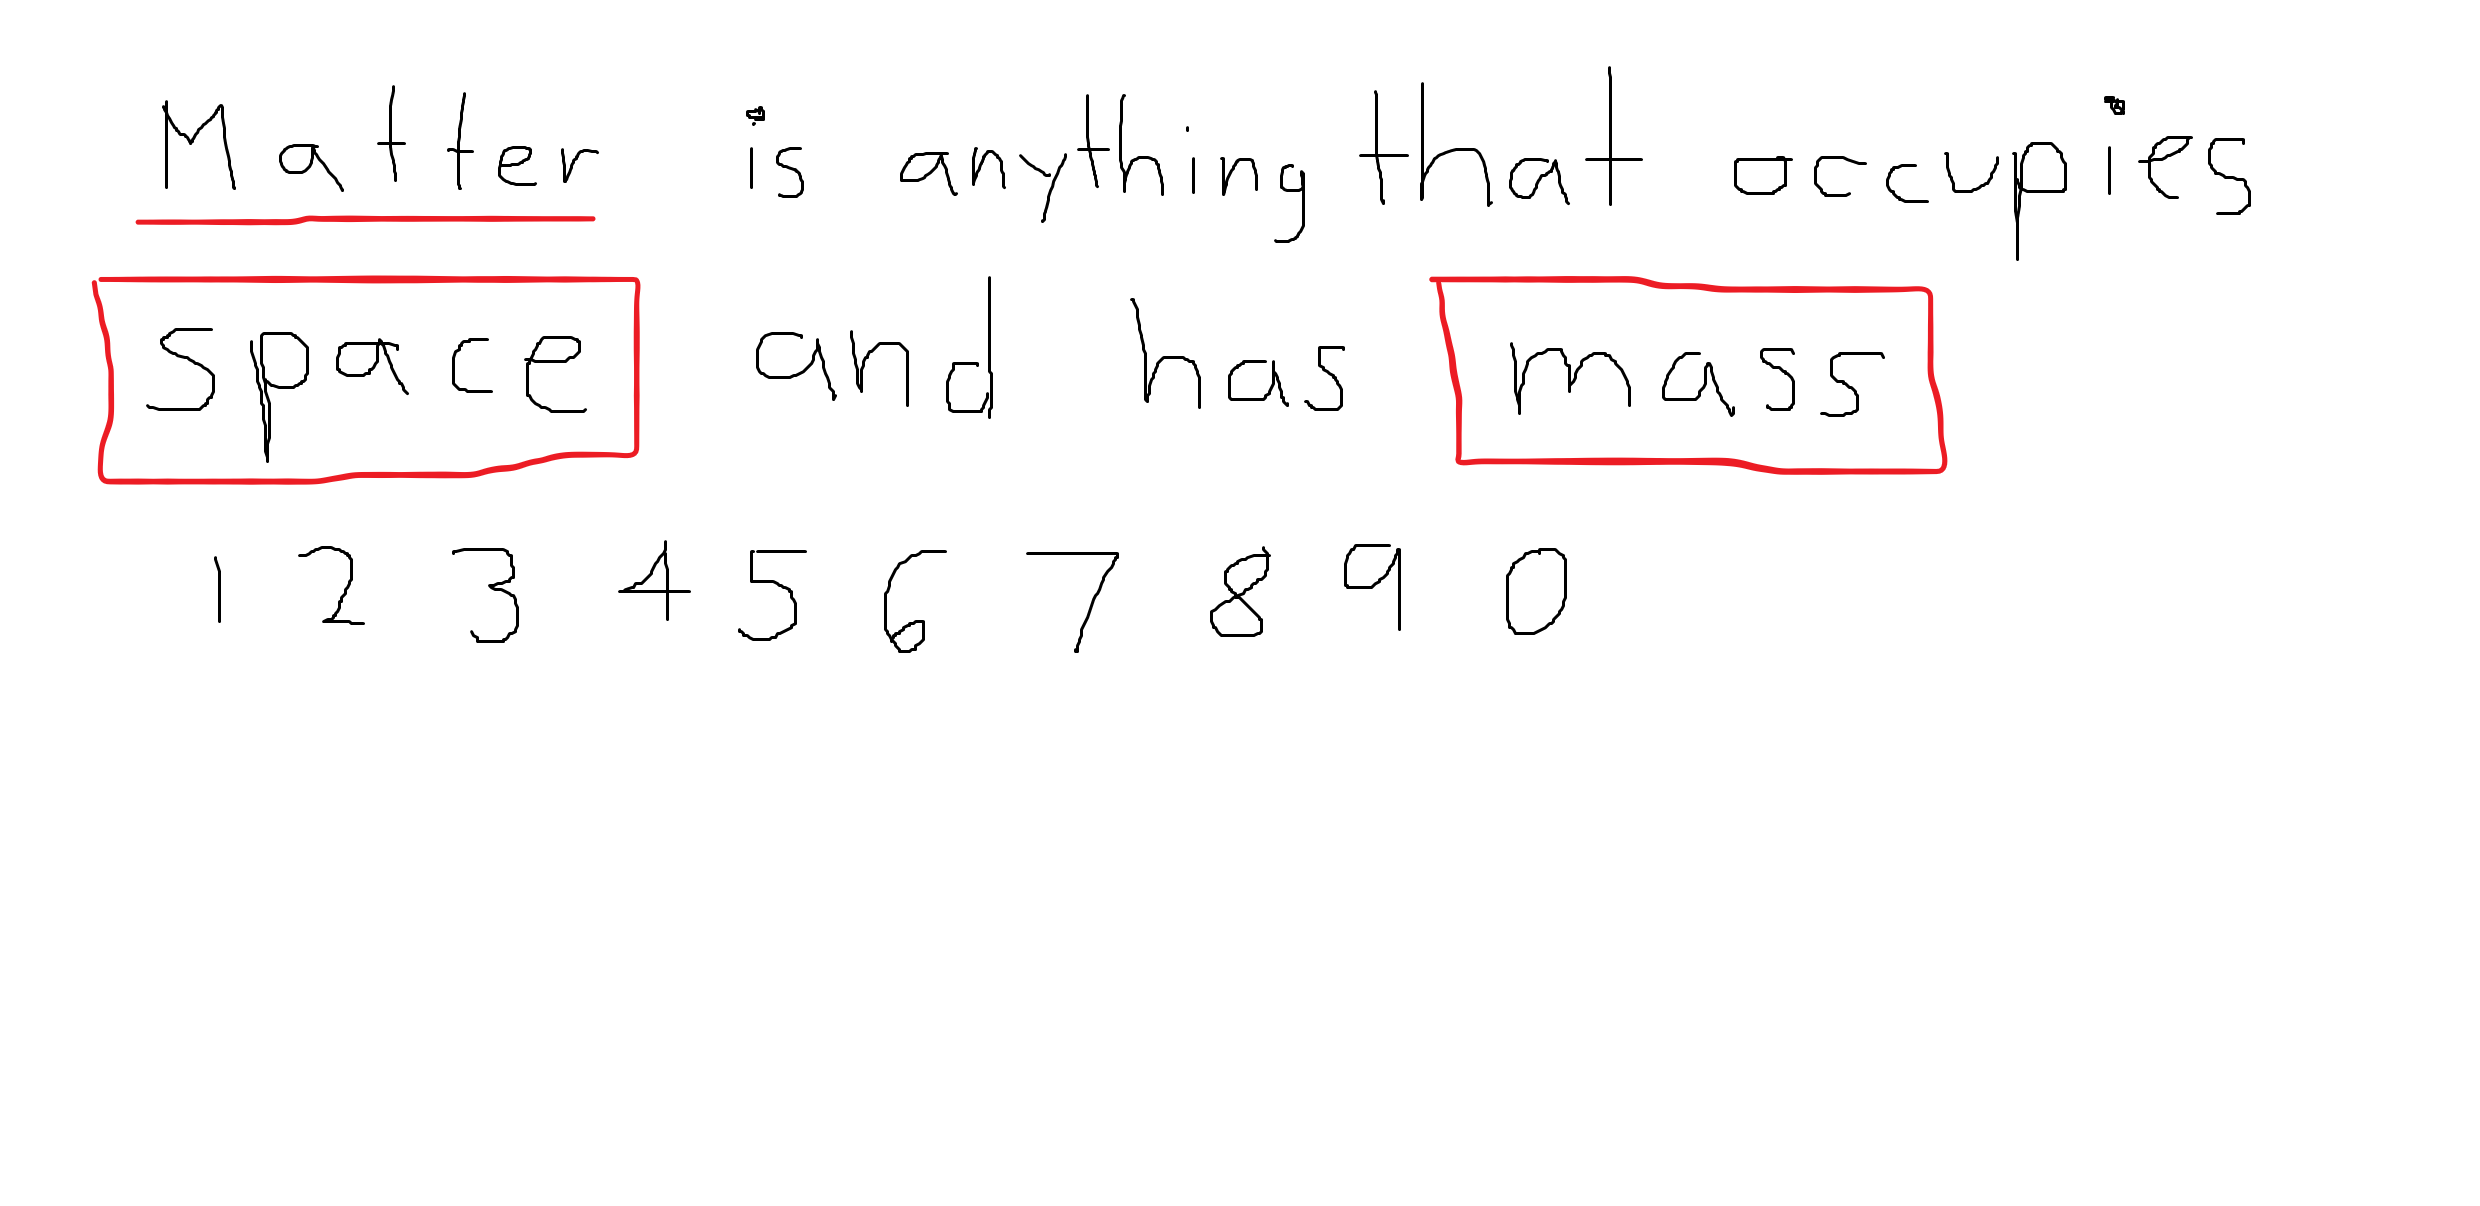 Matter is anything that occupies
space and has mass
1 2 3 4 5 6 7 8 9 0